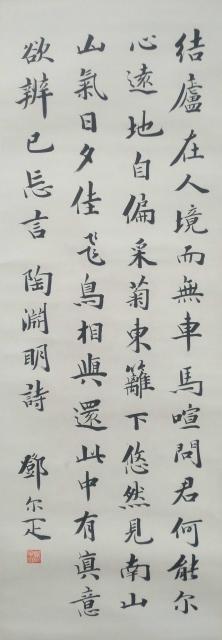 結廬在人境而無車馬喧問君何能尔
心遠地自偏采菊東籬下悠然見南山
山氣日夕佳飛鳥相與還此中有眞意
欲辨已忘言 陶淵明詩 鄧尔疋